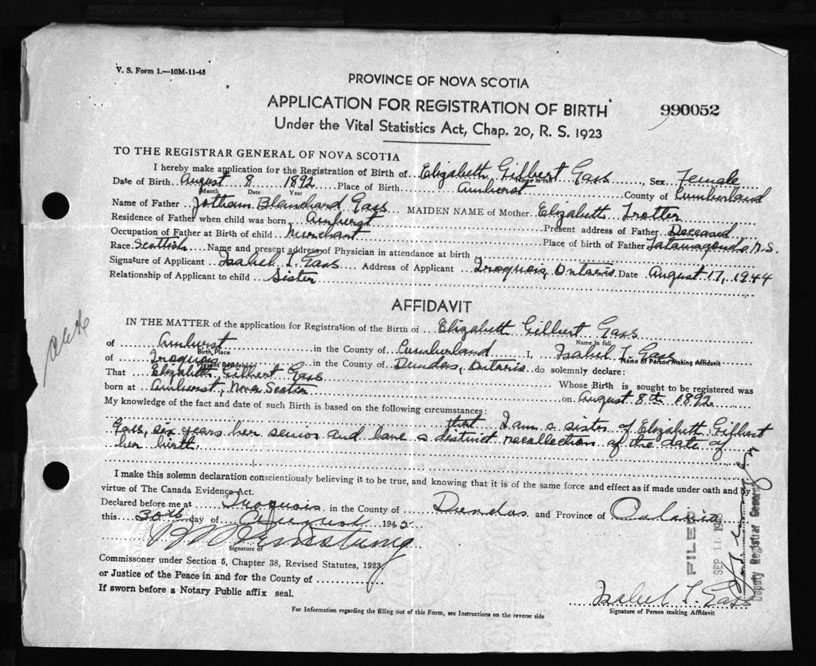 V. S. Form 1.—10M-11-43
PROVINCE OF NOVA SCOTIA
APPLICATION FOR REGISTRATION OF BIRTH
990052
Under the Vital Statistics Act, Chap. 20, R. S. 1923
TO THE REGISTRAR GENERAL OF NOVA SCOTIA
I hereby make application for the Registration of Birth of Elizabeth Gilbert Gass, Sex Female
Date of Birth August 8 1892 Place of Birth Amherst County of Cumberland
Month Date Year
Name of Father Jotham Blanchard Gass MAIDEN NAME of Mother Elizabeth Trotter
Residence of Father when child was born Amherst Present address of Father Deceased
Occupation of Father at Birth of child Merchant Place of birth of Father Tatamagouche N.S.
Race Scottish Name and present address of Physician in attendance at birth
Signature of Applicant Isabel L. Gass Address of Applicant Iroquois, Ontario Date August 17, 1944
Relationship of Applicant to child Sister
AFFIDAVIT
IN THE MATTER of the application for Registration of the Birth of Elizabeth Gilbert Gass
Name in full
of Amherst in the County of Cumberland I, Isabel L. Gass
Birth Place Name of Person making Affidavit
of Iroquois in the County of Dundas, Ontario do solemnly declare:
That Elizabeth Gilbert Gass Whose Birth is sought to be registered was
born at Amherst, Nova Scotia on August 8th 1892
My knowledge of the fact and date of such Birth is based on the following circumstances:
that I am a sister of Elizabeth Gilbert
Gass, six years her senior and have a distinct recollection of the date of
her birth.
I make this solemn declaration conscientiously believing it to be true, and knowing that it is of the same force and effect as if made under oath and by
virtue of The Canada Evidence Act.
Declared before me at Iroquois in the County of Dundas and Province of Ontario
this 30th day of August 1945
Signature of
Commissoner under Section 5, Chapter 38, Revised Statutes, 1923
or Justice of the Peace in and for the County of
If sworn before a Notary Public affix seal.
Isabel L. Gass
Signature of Person making Affidavit
For Information regarding the filling out of this Form, see Instructions on the reverse side
FILED
SEP 11
Deputy Registrar General